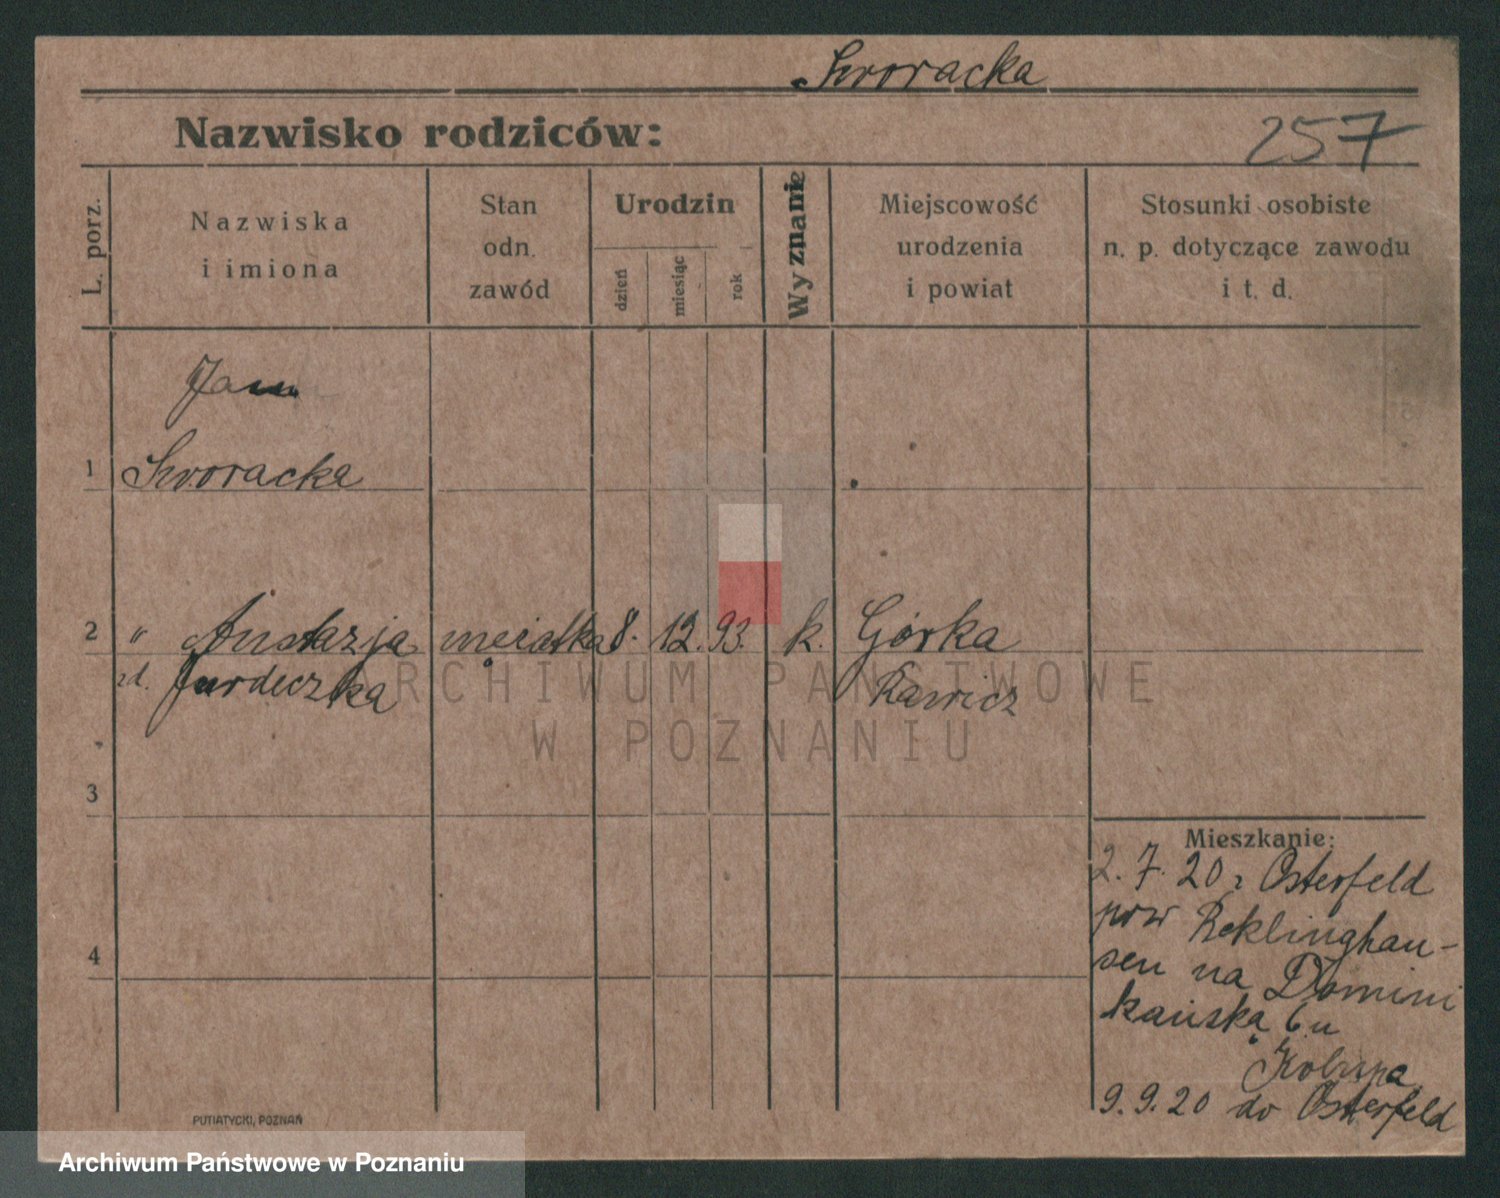 Sworacka
Nazwisko rodziców:
257
L. porz.
Nazwiska
i imiona
Stan
odn.
zawód
Urodzin
dzień
miesiąc
rok
Wyznanie
Miejscowość
urodzenia
i powiat
Stosunki osobiste
n. p. dotyczące zawodu
i t. d.
Jan
1 Sworacka
2 " Anastazja mężatka 8. 12. 93. k. Górka
zd. Jurdeczka Rawicz
3
4
Mieszkanie:
2. 7. 20 z Osterfeld
pow Reklinghau-
sen na Domini
kańską 6 u
9. 9. 20 do Osterfeld
PUTIATYCKI, POZNAŃ
ARCHIWUM PAŃSTWOWE
W POZNANIU
Archiwum Państwowe w Poznaniu